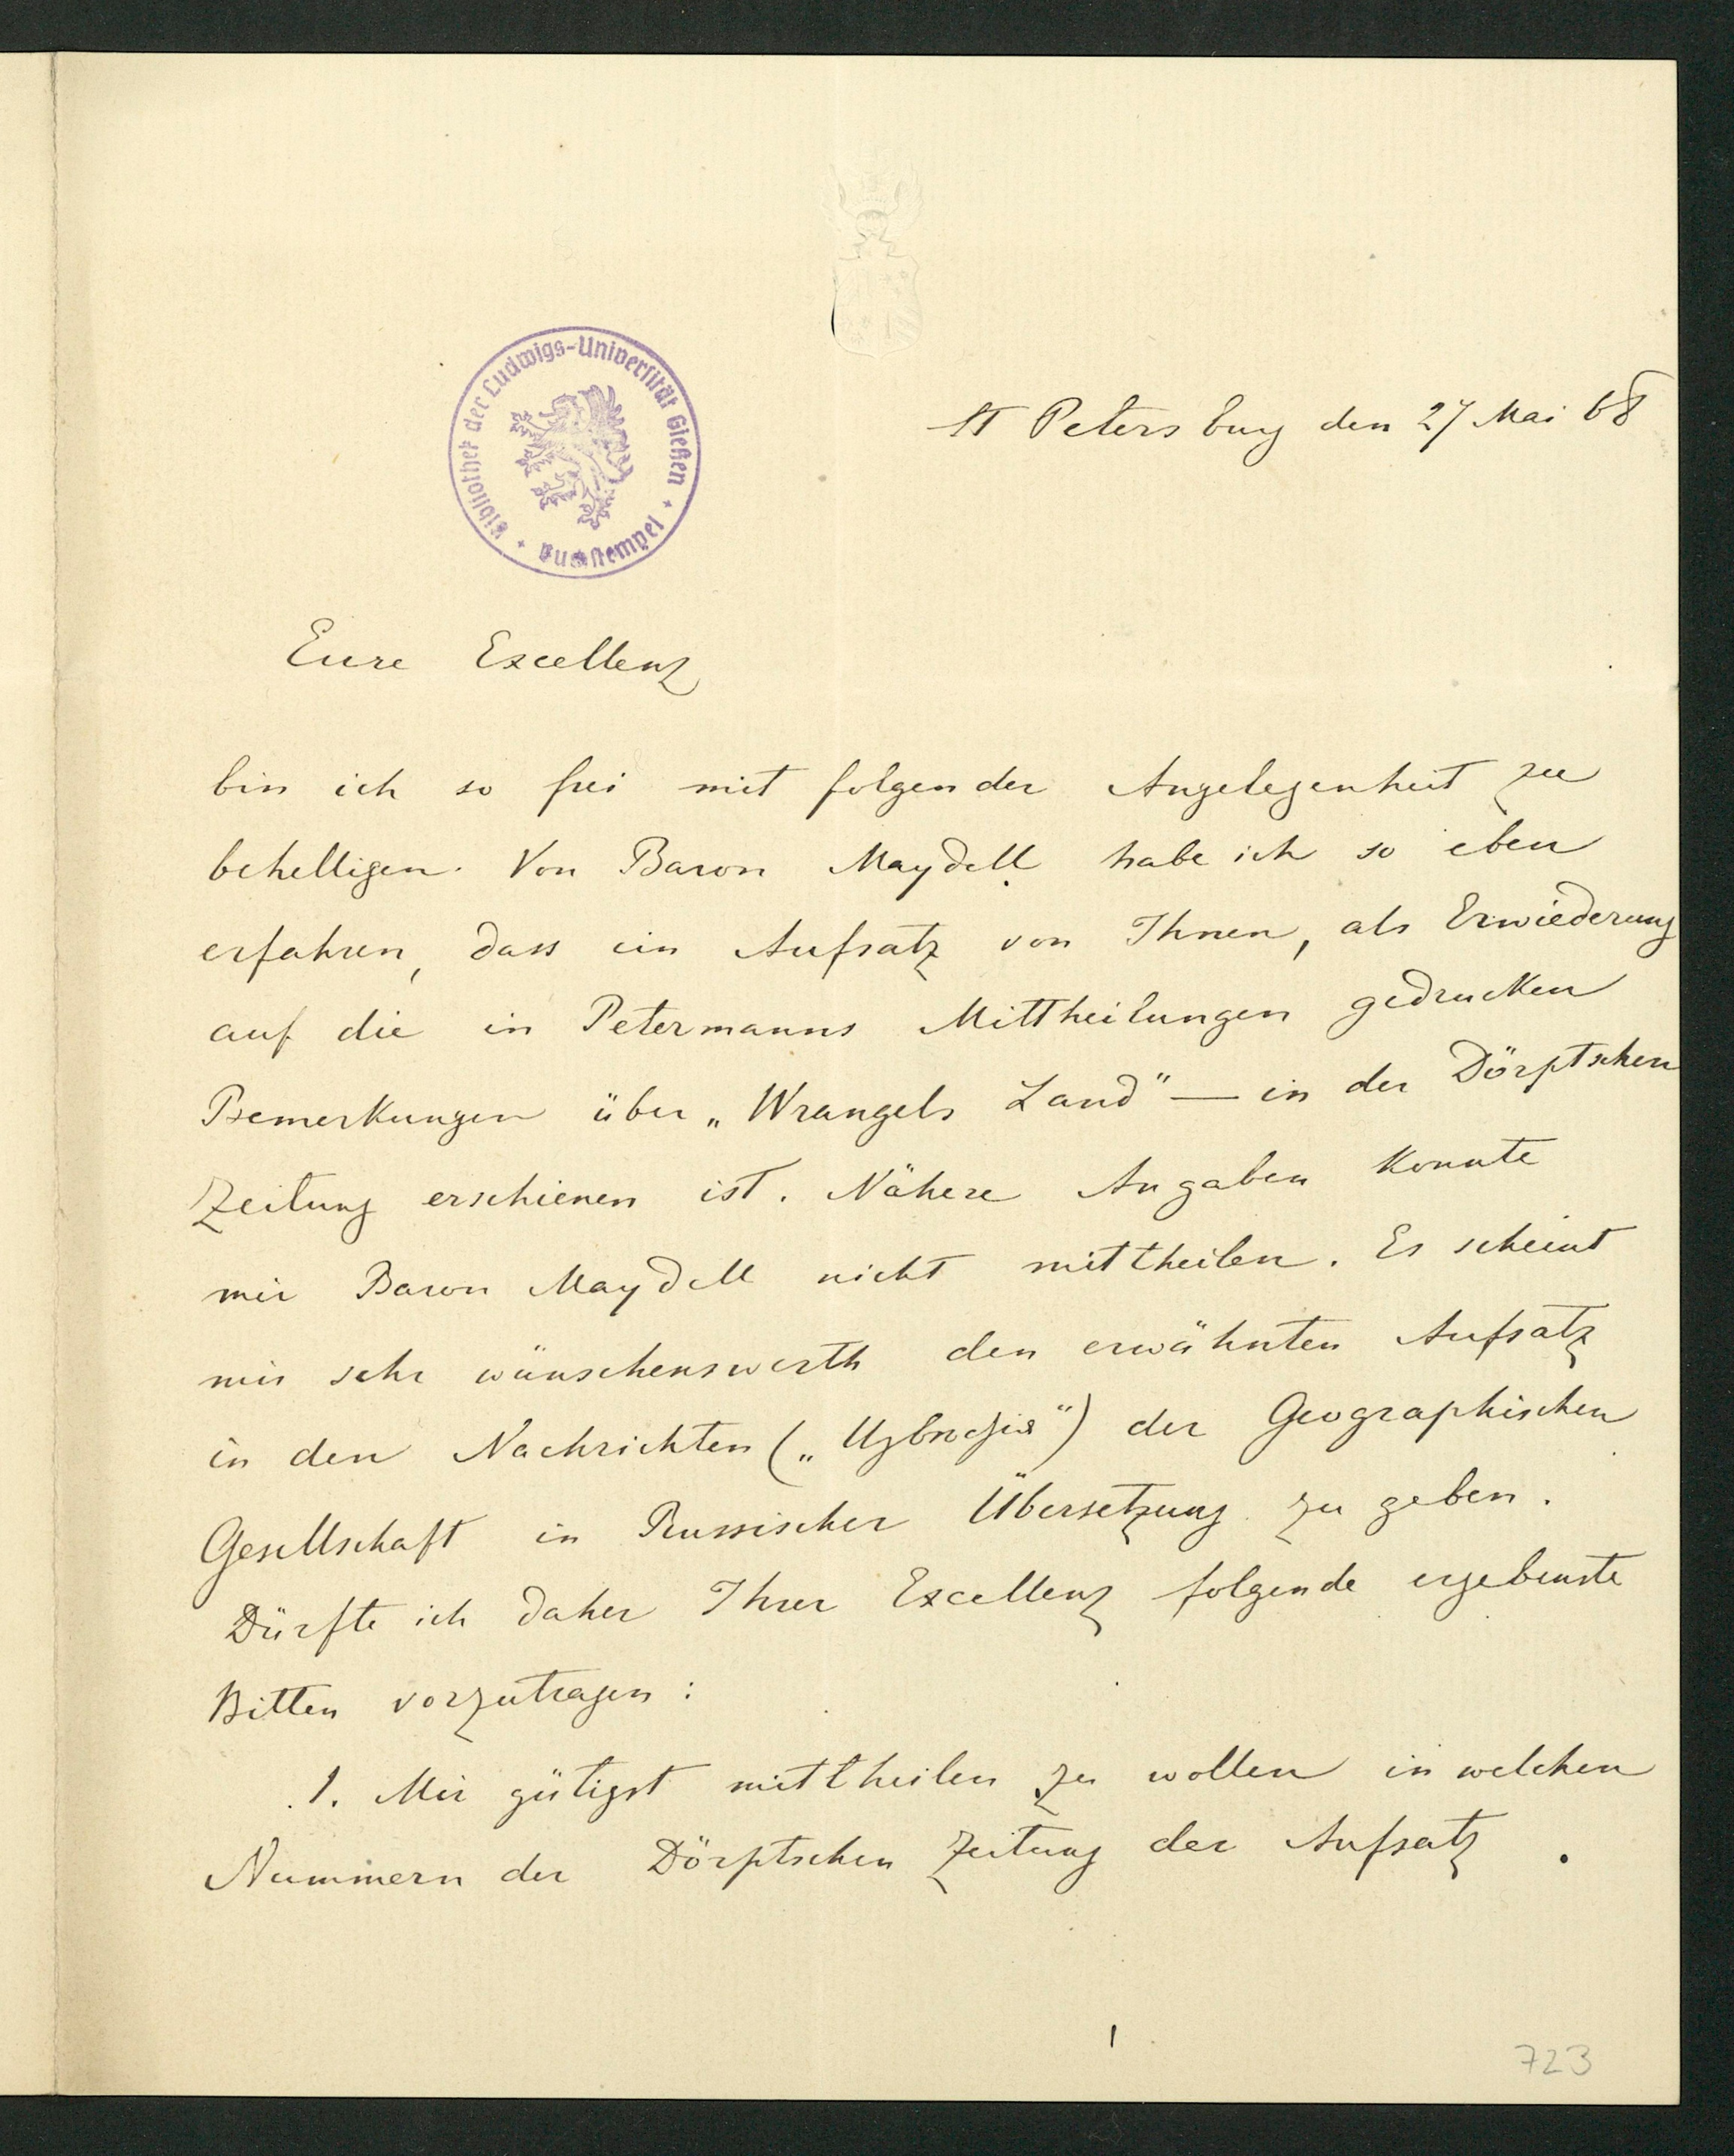 Bibliothek der Ludwigs-Universität Gießen
St Petersburg den 27 Mai 68
Eure Excellenz
bin ich so frei mit folgender Angelegenheit zu
behelligen. Von Baron Maydell habe ich so eben
erfahren, dass ein Aufsatz von Ihnen, als Erwiederung
auf die in Petermanns Mittheilungen gedrucken
Bemerkungen über „Wrangels Land" — in der Dörptschen
Zeitung erschienen ist. Nähere Angaben konnte
mir Baron Maydell nicht mittheilen. Es scheint
mir sehr wünschenswerth den erwähnten Aufsatz
in den Nachrichten („Извѣстія") der Geographischen
Gesellschaft in Russischer Übersetzung zu geben.
Dürfte ich daher Ihrer Excellenz folgende ergebenste
Bitten vorzutragen:
1. Mir gütigst mittheilen zu wollen in welchen
Nummern der Dörptschen Zeitung der Aufsatz
723